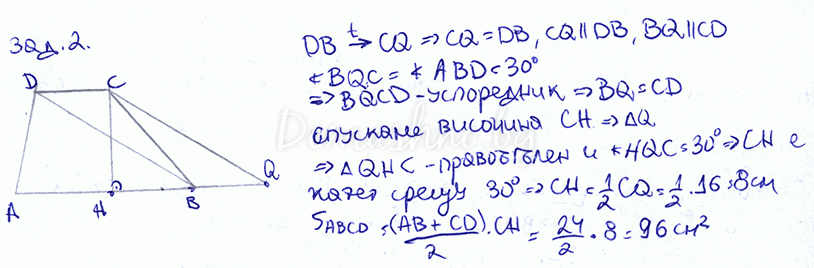 Зад. 2.
D C
A H B Q
DB t→ CQ ⇒ CQ = DB, CQ || DB, BQ || CD
∢ BQC = ∢ ABD = 30°
⇒ BQCD - успоредник ⇒ BQ = CD
спускаме височина CH ⇒ ΔQ
⇒ ΔQHC - правоъгълен и ∢HQC = 30° ⇒ CH е
катет срещу 30° ⇒ CH = 1/2 CQ = 1/2 . 16 = 8 см
S ABCD = (AB + CD)/2 . CH = 24/2 . 8 = 96 см²